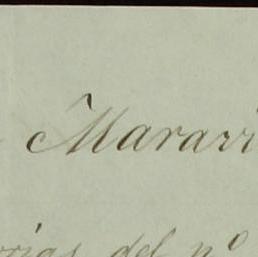 Mararr
orias del nº